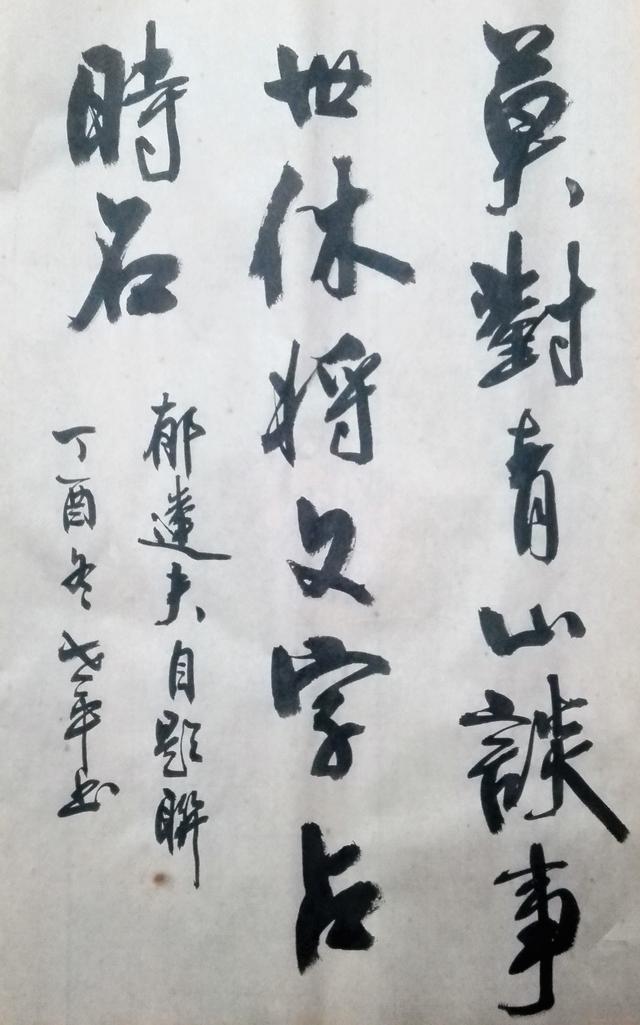 莫對青山談事
世休将文字占
時名
郁達夫自題聯
丁酉冬平书